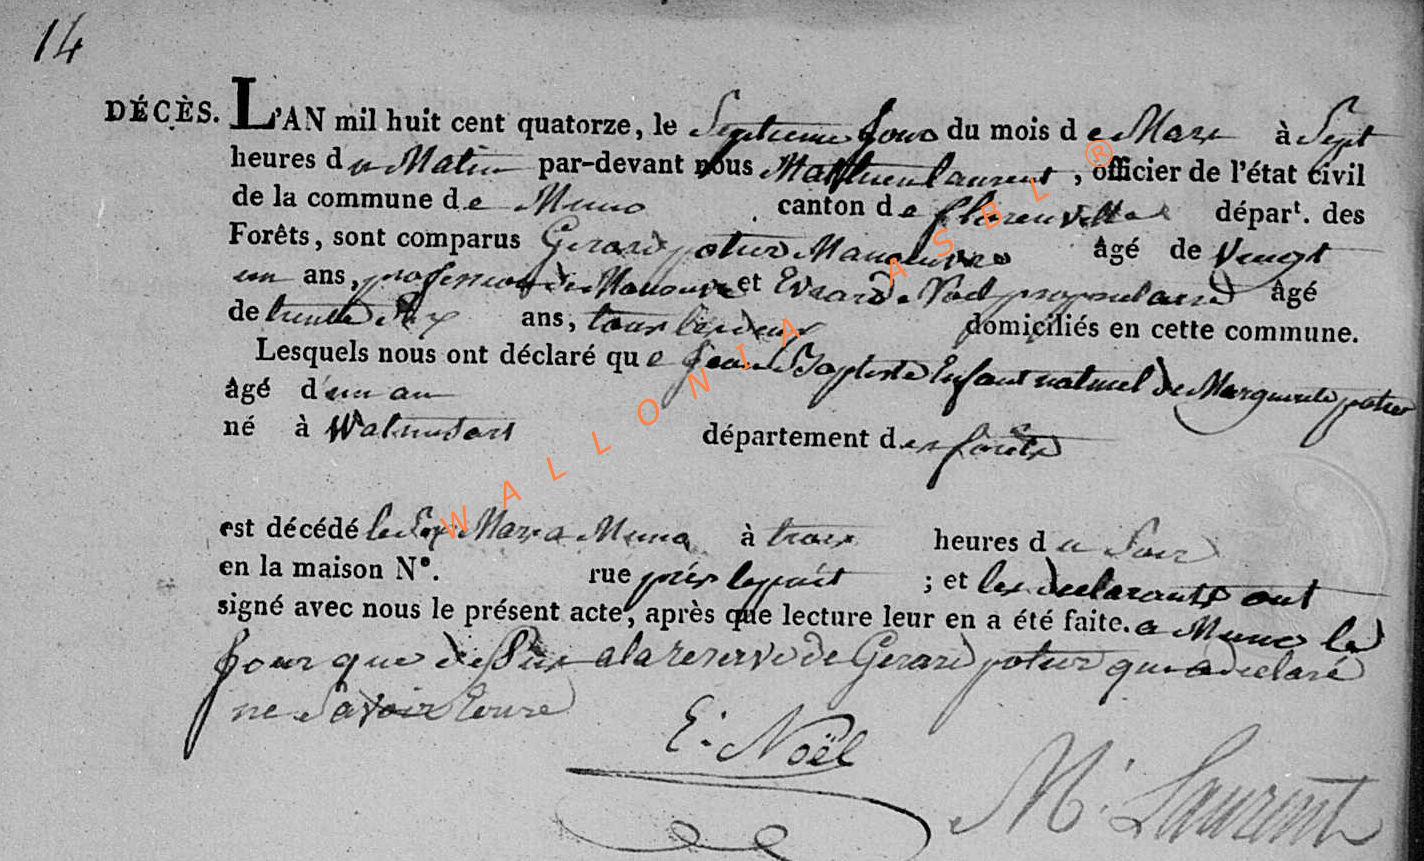 14
DÉCÈS. L'AN mil huit cent quatorze, le Septieme Jour du mois de Mars à Sept
heures du Matin par-devant nous Mathieu laurent, officier de l'état civil
de la commune de Muno canton de florenville départ. des
Forêts, sont comparus Gerard potier Manoeuvre âgé de Vingt
un ans, profession de Manouvre et Evrard Noel propriétaire âgé
de trente Six ans, tous les deux domiciliés en cette commune.
Lesquels nous ont déclaré que Jean Baptiste Enfant naturel de Marguerite potier
âgé d'un an
né à département des forêts
est décédé le Six Mars a Muno à trois heures du Soir
en la maison N°. rue prés le puit ; et les declarants ont
signé avec nous le présent acte, après que lecture leur en a été faite. a Muno le
Jour que de Sus a la reserve de Gerard potier qui a declaré
ne Savoir Ecrire
E. Noël
M. Laurent
WALLONIA ASBL ®